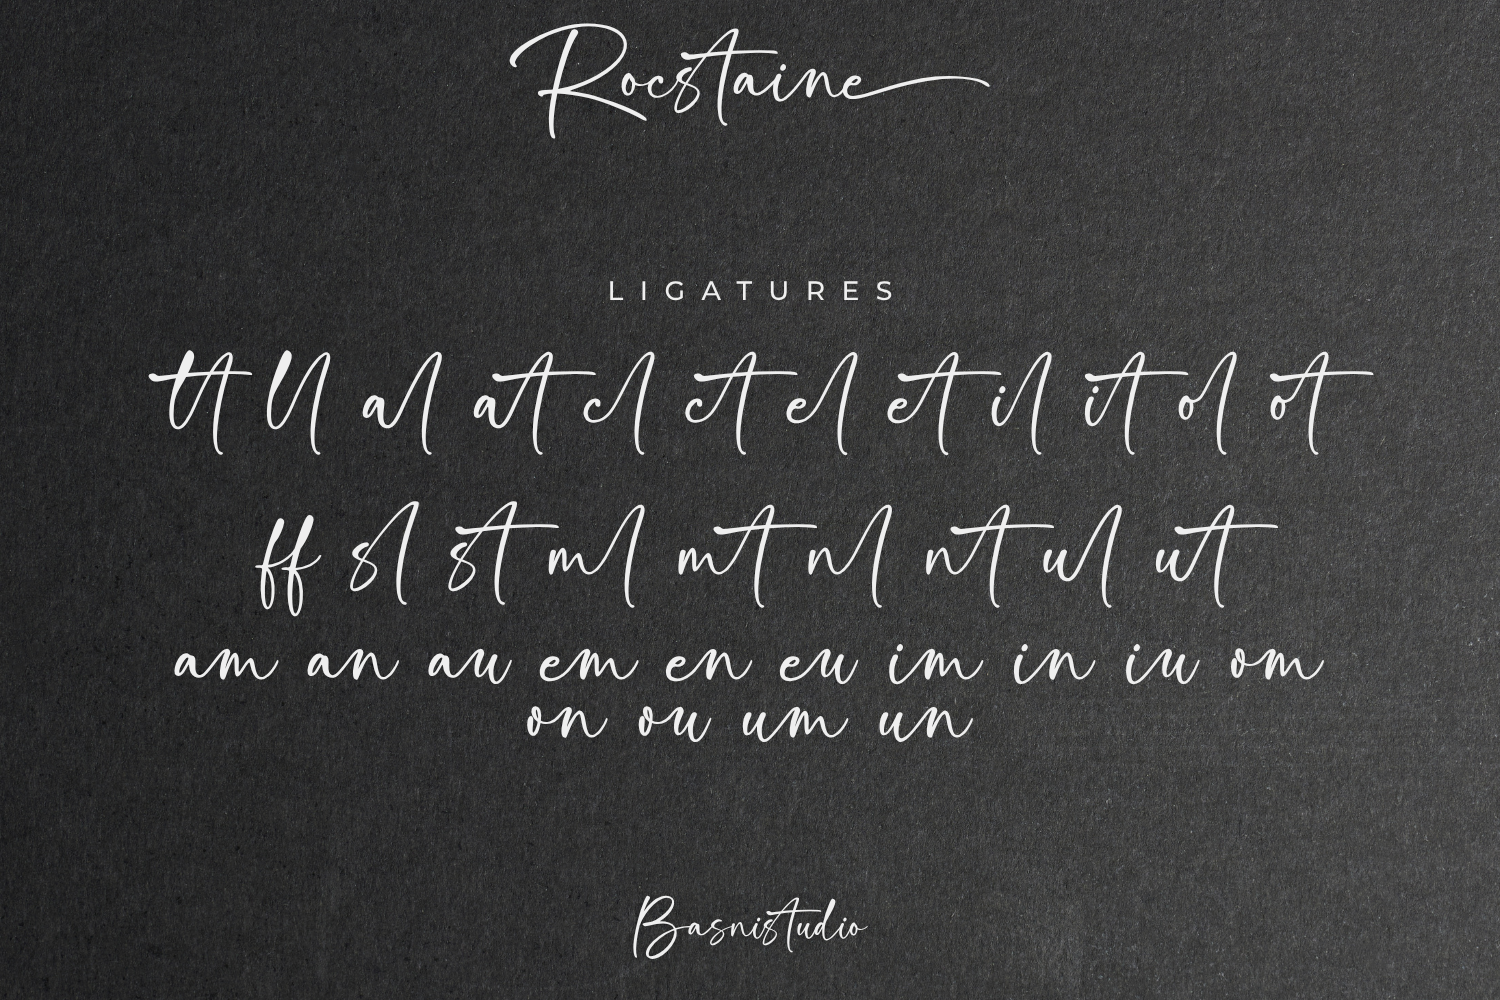 Rocstaine
LIGATURES
tt ll al at cl ct el et il it ol ot
ff sl st ml mt nl nt ul ut
am an au em en eu im in iu om
on ou um un
Basnistudio